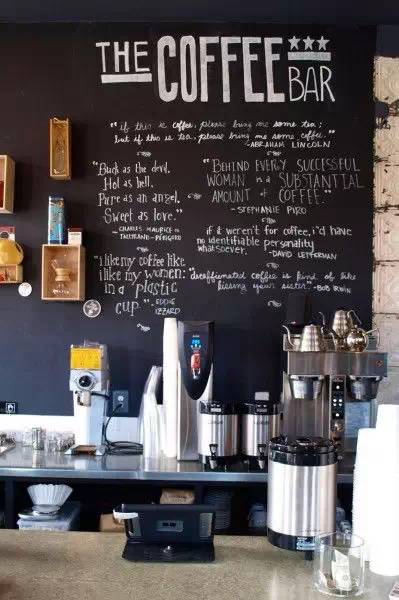 THE COFFEE BAR
"if this is coffee, please bring me some tea;
but if this is tea, please bring me some coffee."
-ABRAHAM LINCOLN
"Black as the devil,
Hot as hell,
Pure as an angel,
Sweet as love."
-CHARLES MAURICE de
TALLEYRAND-PÉRIGORD
"BEHIND EVERY SUCCESSFUL
WOMAN is a SUBSTANTIAL
AMOUNT of COFFEE."
-STEPHANIE PIRO
if it weren't for coffee, i'd have
no identifiable personality
whatsoever. -DAVID LETTERMAN
"i like my coffee like
i like my women:
in a plastic
cup" EDDIE
IZZARD
"decaffeinated coffee is kind of like
kissing your sister" -BOB IRWIN